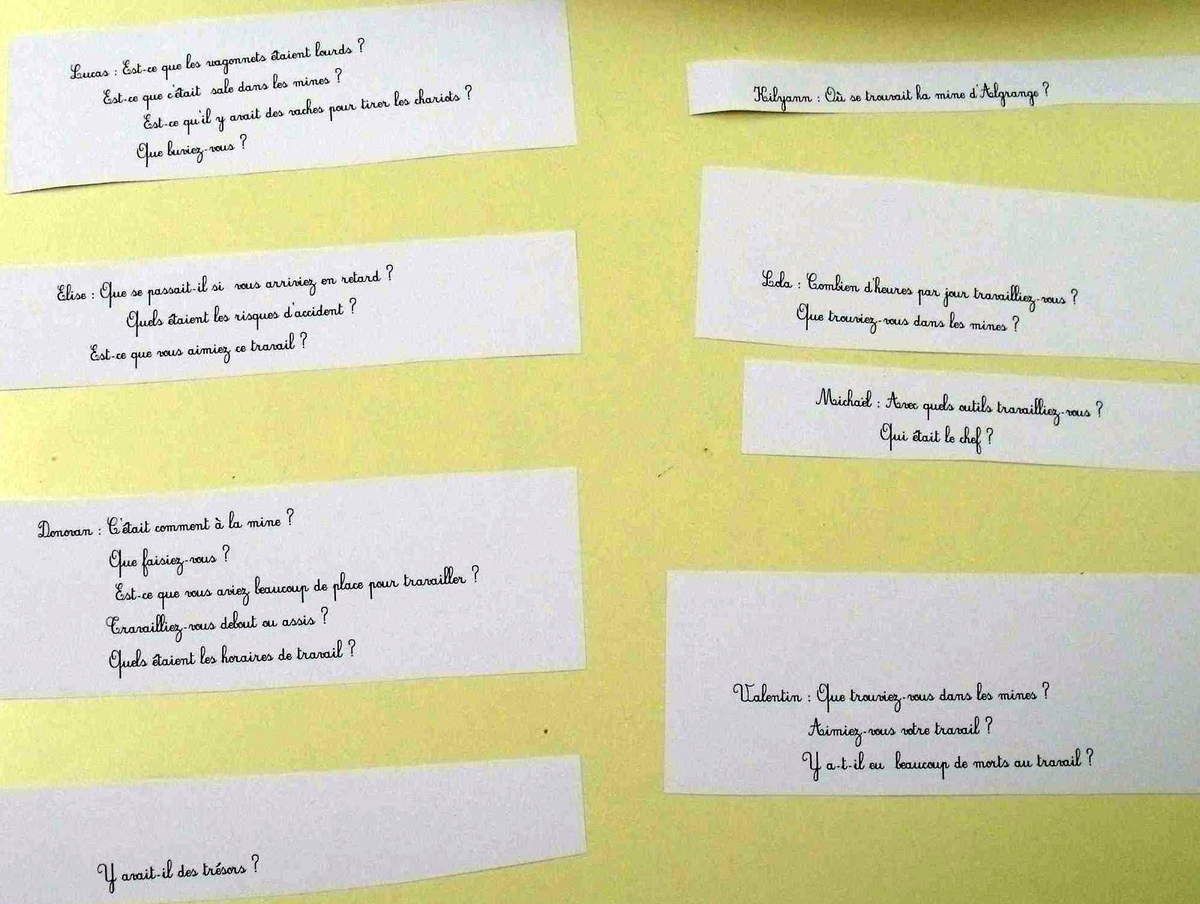 Lucas : Est-ce que les wagonnets étaient lourds ?
Est-ce que c'était sale dans les mines ?
Est-ce qu'il y avait des vaches pour tirer les chariots ?
Que buviez-vous ?
Elise : Que se passait-il si vous arriviez en retard ?
Quels étaient les risques d'accident ?
Est-ce que vous aimiez ce travail ?
Donovan : C'était comment à la mine ?
Que faisiez-vous ?
Est-ce que vous aviez beaucoup de place pour travailler ?
Travailliez-vous debout ou assis ?
Quels étaient les horaires de travail ?
Y avait-il des trésors ?
Kilyann : Où se trouvait ka mine d'Algrange ?
Lola : Combien d'heures par jour travailliez-vous ?
Que trouviez-vous dans les mines ?
Michaël : Avec quels outils travailliez-vous ?
Qui était le chef ?
Valentin : Que trouviez-vous dans les mines ?
Aimiez-vous votre travail ?
Y a-t-il eu beaucoup de morts au travail ?